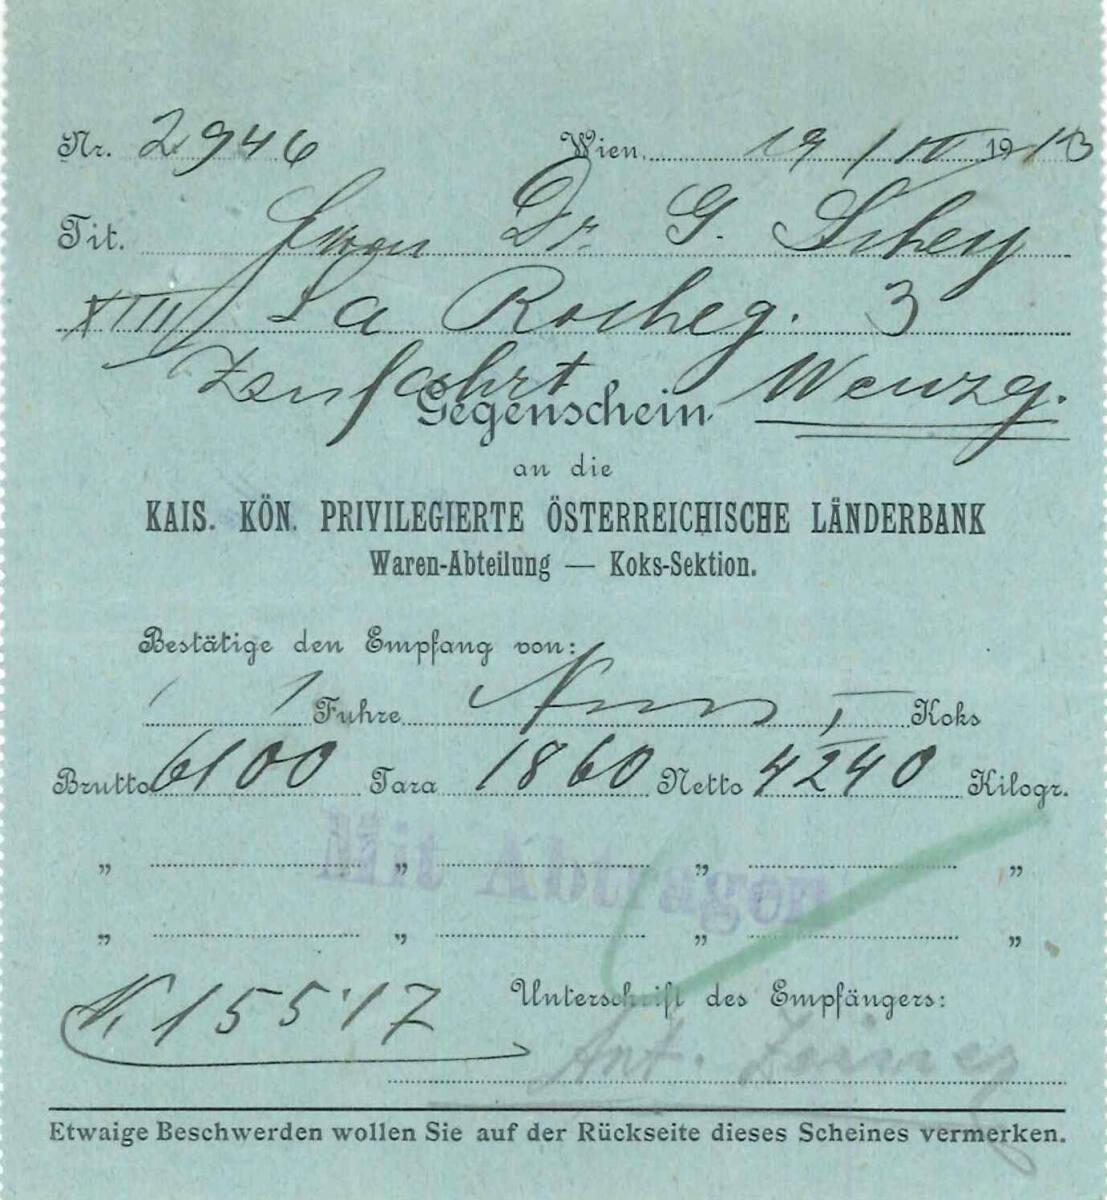 Nr. 2946 Wien, 19/IV 1913
Tit. Herrn Dr. G. Schey
XIII La Rocheg. 3
Zufahrt Wenzg.
Gegenschein
an die
KAIS. KÖN. PRIVILEGIERTE ÖSTERREICHISCHE LÄNDERBANK
Waren-Abteilung — Koks-Sektion.
Bestätige den Empfang von:
1 Fuhre I Koks
Brutto 6100 Tara 1860 Netto 4240 Kilogr.
„ „ „ „
Mit Abtragen
„ „ „ „
K 155·17 Unterschrift des Empfängers:
Ant.
Etwaige Beschwerden wollen Sie auf der Rückseite dieses Scheines vermerken.